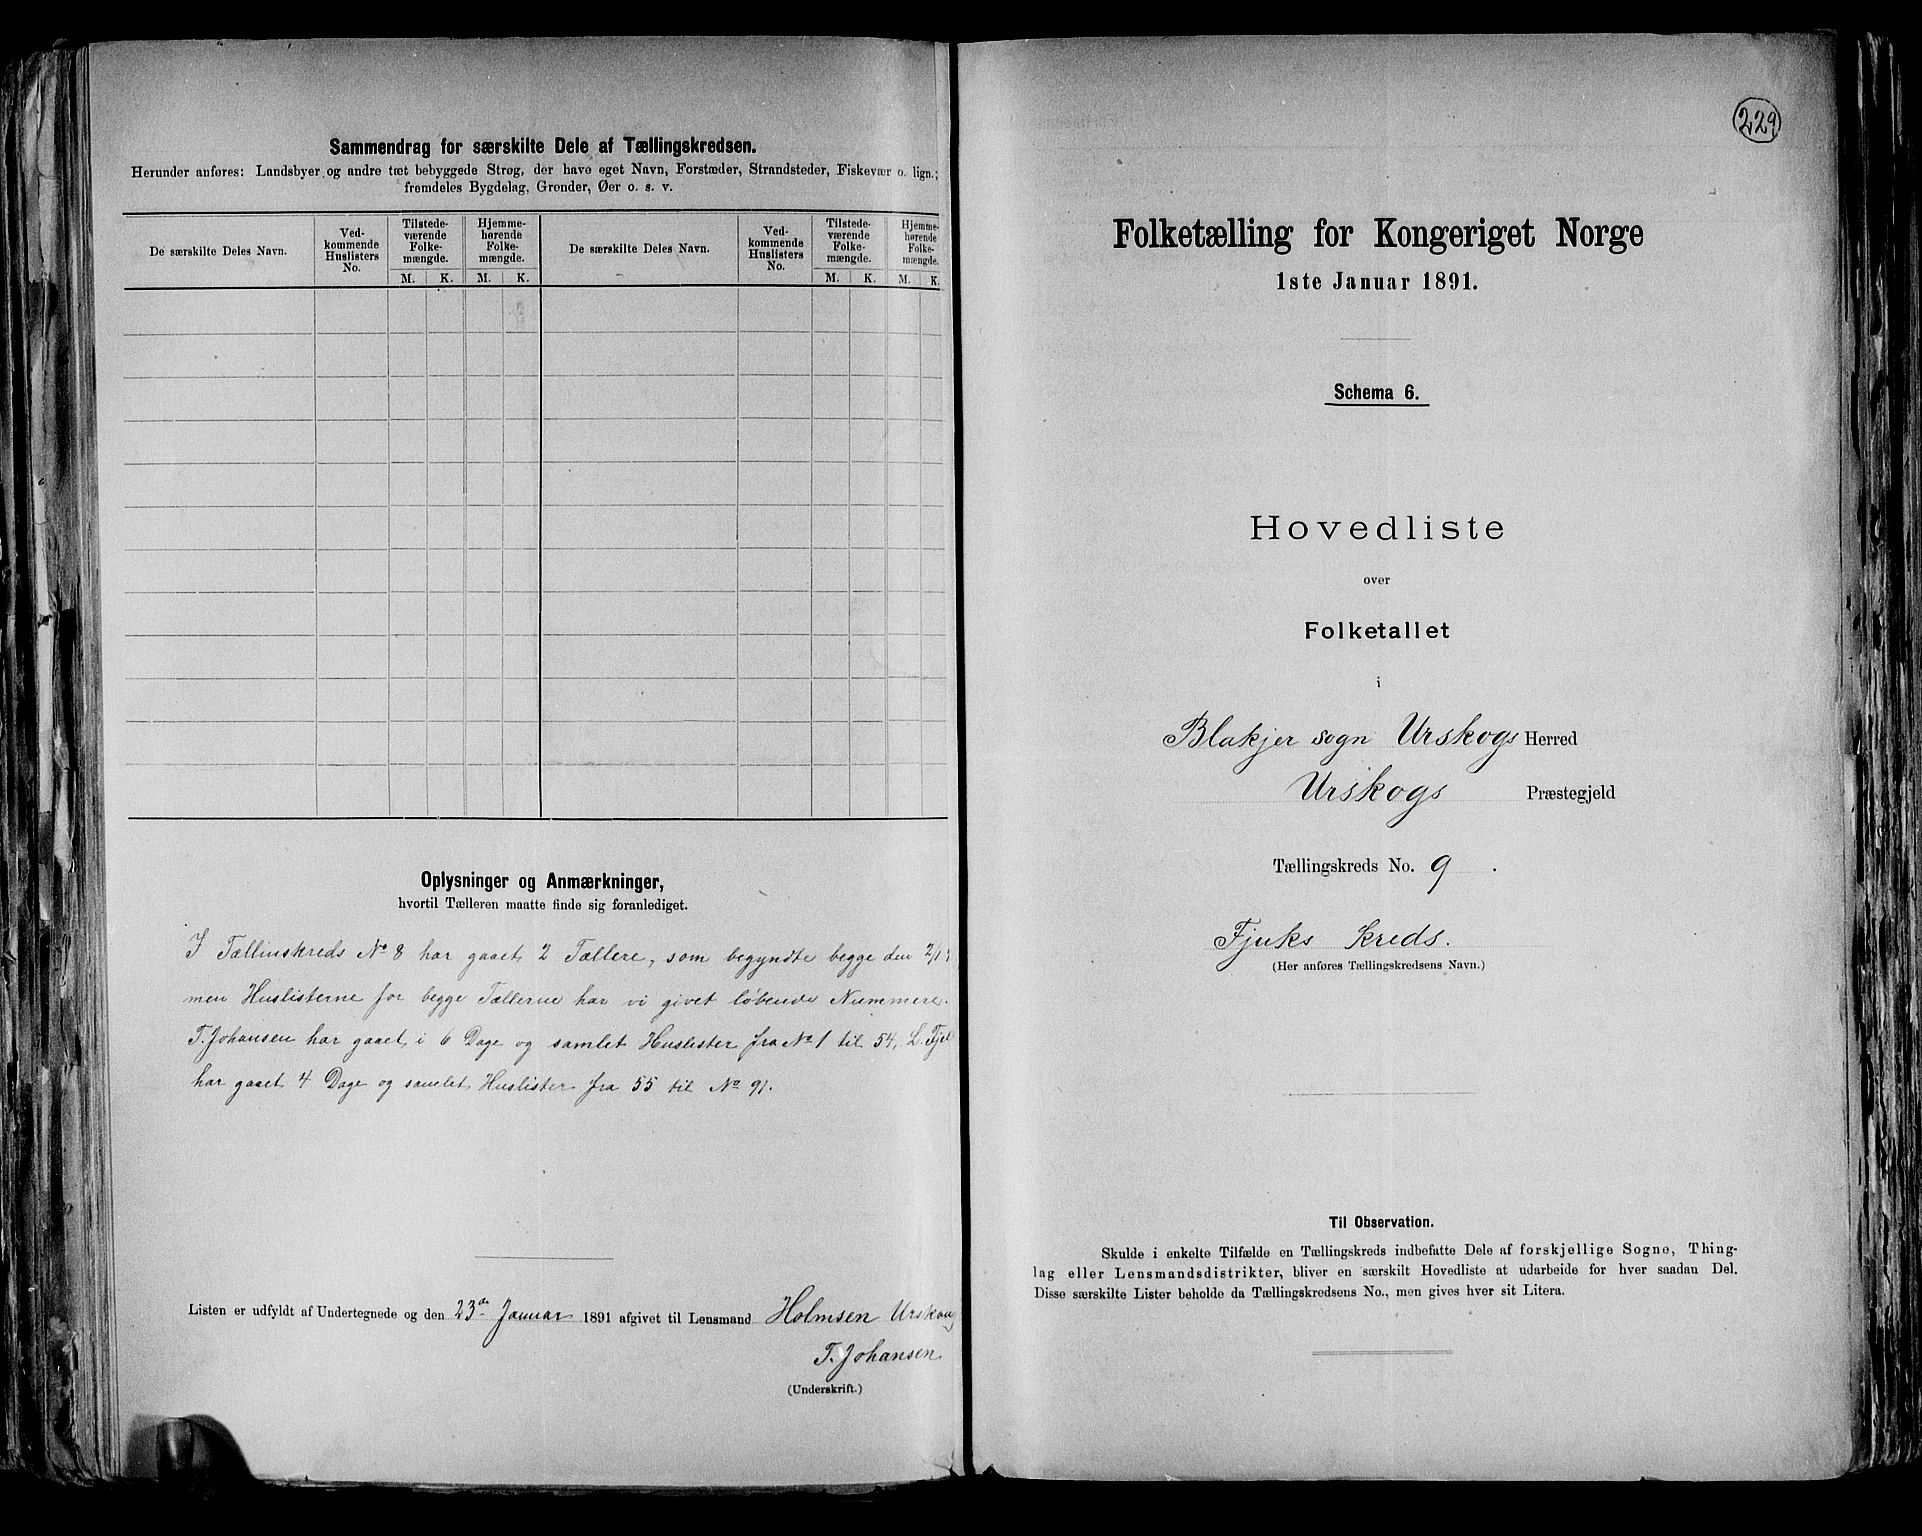 Sammendrag for særskilte Dele af Tællingskredsen.
Herunder anføres: Landsbyer og andre tæt bebyggede Strøg, der have eget Navn, Forstæder, Strandsteder, Fiskevær o. lign.;
fremdeles Bygdelag, Grender, Øer o. s. v.
De særskilte Deles Navn.
Ved-
kommende
Huslisters
No.
Tilstede-
værende
Folke-
mængde.
Hjemme-
hørende
Folke-
mængde.
De særskilte Deles Navn.
Ved-
kommende
Huslisters
No.
Tilstede-
værende
Folke-
mængde.
Hjemme-
hørende
Folke-
mængde.
M. K. M. K. M. K. M. K.
Oplysninger og Anmærkninger,
hvortil Tælleren maatte finde sig foranlediget.
I Tællinskreds No 8 har gaaet 2 Tællere, som begyndte begge den 2/1
men Huslisterne for begge Tællerne har vi givet løbende Nummere.
T. Johansen har gaaet i 6 Dage og samlet Huslister fra No 1 til 54, L. Fjel
har gaaet 4 Dage og samlet Huslister fra 55 til No 91.
Listen er udfyldt af Undertegnede og den 23de Januar 1891 afgivet til Lensmand Holmsen Urskoug
T. Johansen
(Underskrift.)
229
Folketælling for Kongeriget Norge
1ste Januar 1891.
Schema 6.
Hovedliste
over
Folketallet
i
Blakjer sogn Urskogs Herred
Urskogs Præstegjeld
Tællingskreds No. 9.
Fjuks Kreds.
(Her anføres Tællingskredsens Navn.)
Til Observation.
Skulde i enkelte Tilfælde en Tællingskreds indbefatte Dele af forskjellige Sogne, Thing-
lag eller Lensmandsdistrikter, bliver en særskilt Hovedliste at udarbeide for hver saadan Del.
Disse særskilte Lister beholde da Tællingskredsens No., men gives hver sit Litera.